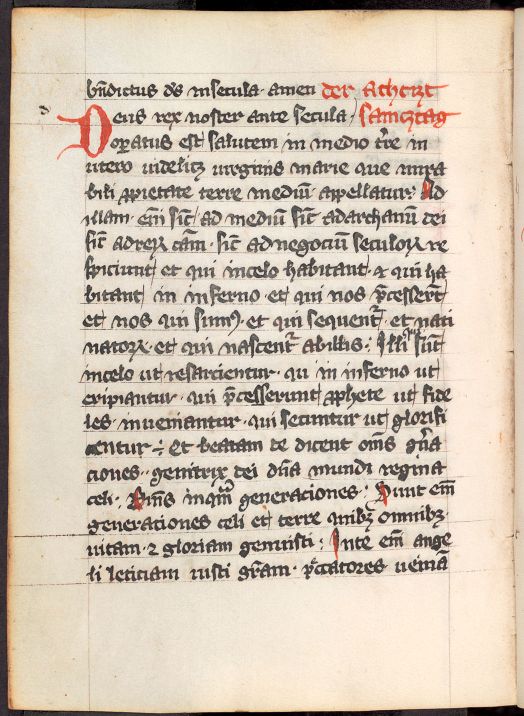 bn̄dictus ds̄ in secula · amen der achtzt
Deus rex noster ante secula / sampcztag
operatus est salutem in medio tr̄e in
utero videlicz virginis marie que mira
bili ꝓprietate terre mediū · appellatur · Ad
illam · em̄ sic̄ ad medium sic̄ ad archanū dei
sic̄ ad reꝝ cām · sic̄ ad negociū seculoꝝ re
spiciunt et qui in celo habitant · ⁊ qui ha
bitant in inferno · et qui nos p̄cesserūt
et nos qui sumꝰ · et qui sequent᷑ · et nati
natoꝝ · et qui nascent᷑ ab illis : Illi qui sūt
in celo ut resarcientur · qui in inferno ut
eripiantur · qui p̄cesserunt ꝓphete ut fide
les · inveniantur · qui secuntur ut glorifi
centur ÷ Et beatam te dicent om̄s gn̄a
ciones · genitrix dei dn̄a mundi regina
celi · Om̄s inqm̄ generaciones · Sunt em̄
generationes celi et terre quibꝫ omnibꝫ
vitam · ⁊ gloriam genuisti : In te em̄ ange
li leticiam iusti grām · pctatores veniā